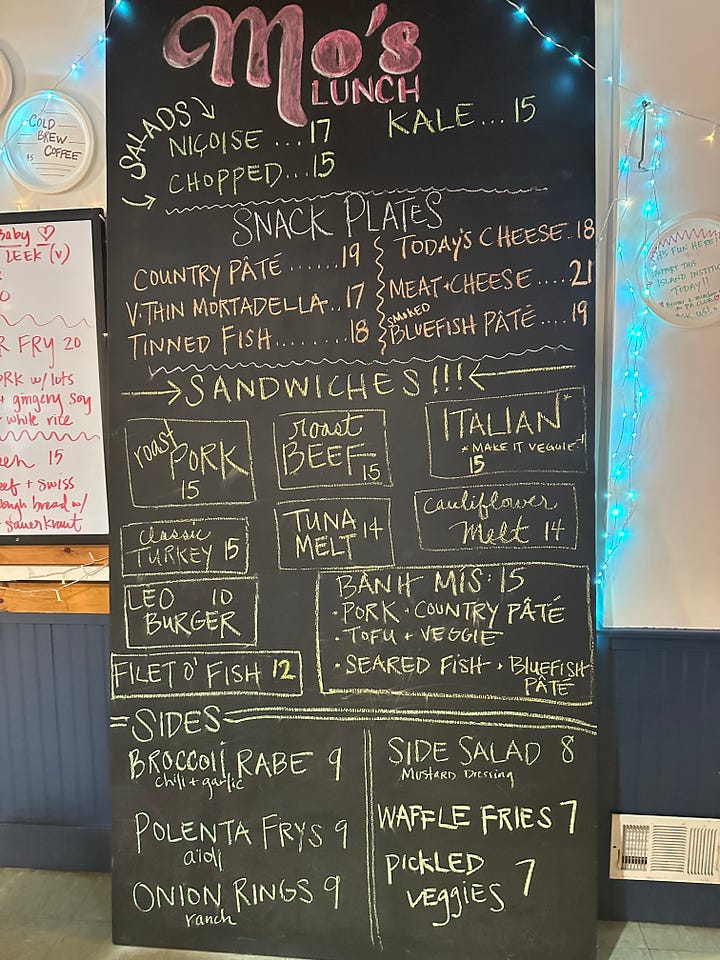 Mo's
LUNCH
SALADS
NIÇOISE ... 17
CHOPPED ... 15
KALE ... 15
SNACK PLATES
COUNTRY PÂTÉ ...... 19
V. THIN MORTADELLA .. 17
TINNED FISH ........ 18
TODAY'S CHEESE .. 18
MEAT + CHEESE .... 21
SMOKED
BLUEFISH PÂTÉ .... 19
SANDWICHES!!!
roast
PORK
15
roast
BEEF 15
ITALIAN*
* MAKE IT VEGGIE!
15
classic
TURKEY 15
TUNA 14
MELT
cauliflower
Melt 14
LEO 10
BURGER
FILET O' FISH 12
BANH MIS · 15
· PORK + COUNTRY PÂTÉ
· TOFU + VEGGIE
· SEARED FISH + BLUEFISH
PÂTÉ
SIDES
BROCCOLI RABE 9
chili + garlic
POLENTA FRYS 9
aioli
ONION RINGS 9
ranch
SIDE SALAD 8
Mustard Dressing
WAFFLE FRIES 7
PICKLED
VEGGIES 7
COLD
BREW
COFFEE
$5
Baby
LEEK (v)
FRY 20
w/ lots
+ gingery soy
white rice
15
+ swiss
bread w/
sauerkraut
IT'S FUN HERE!
THIS
ISLAND
TODAY!!